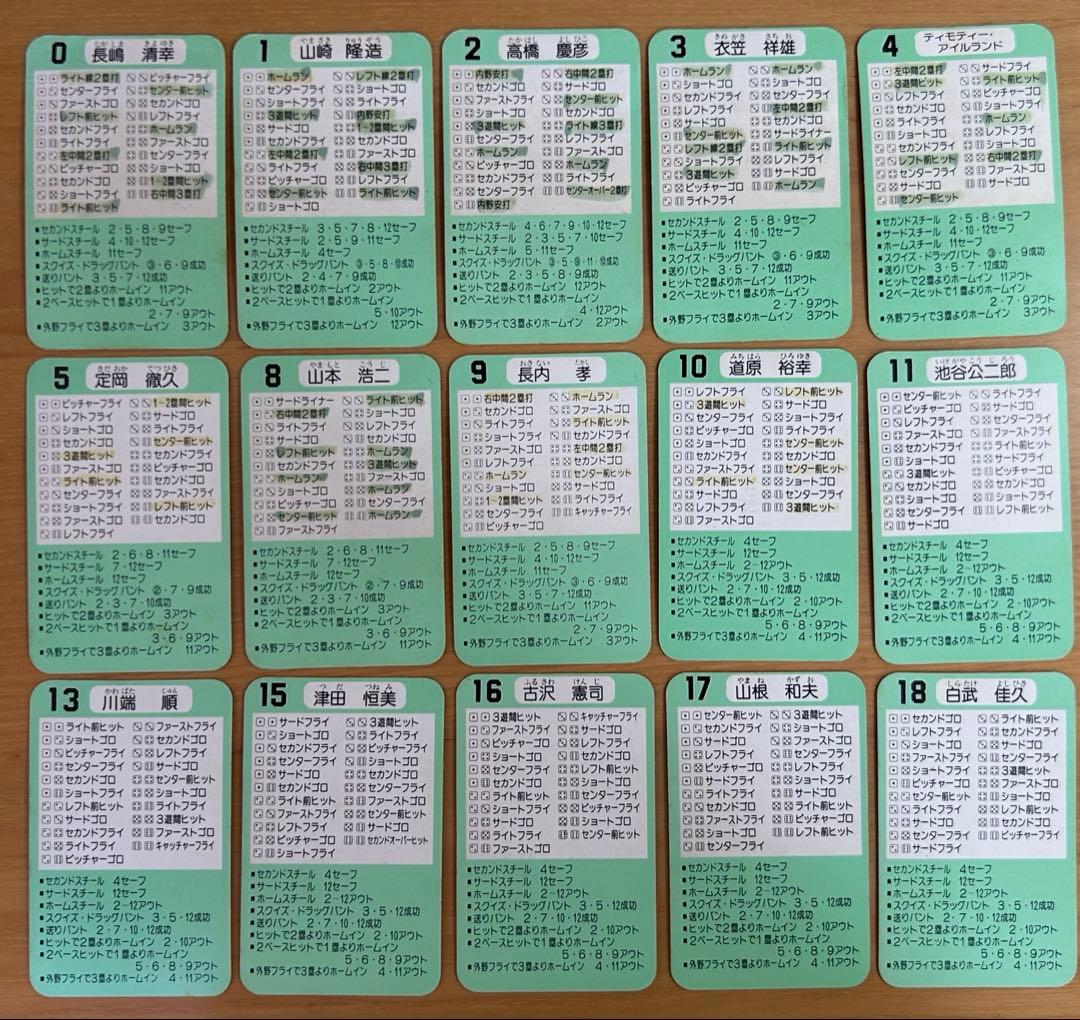 0 長嶋 清幸
ながしま きよゆき
ライト線2塁打 ピッチャーフライ
センターフライ センター前ヒット
ファーストゴロ セカンドゴロ
レフト前ヒット ライトフライ
セカンドゴロ ホームラン
ライトフライ ファーストゴロ
左中間2塁打 センターフライ
ピッチャーゴロ ショートゴロ
セカンドゴロ 1~2塁間ヒット
ショートフライ 右中間3塁打
ライト前ヒット
■セカンドスチール 2・5・8・9セーフ
■サードスチール 4・10・12セーフ
■ホームスチール 11セーフ
■スクイズ・ドラッグバント ③・6・9成功
■送りバント 3・5・7・12成功
■ヒットで2塁よりホームイン 11アウト
■2ベースヒットで1塁よりホームイン
2・7・9アウト
■外野フライで3塁よりホームイン 3アウト
1 山崎 隆造
やまざき りゅうぞう
ホームラン レフト線2塁打
センターフライ ショートゴロ
ショートフライ ライトフライ
3遊間ヒット 内野安打
サードゴロ 1~2塁間ヒット
ライトフライ セカンドゴロ
左中間2塁打 ファーストゴロ
セカンドゴロ 右中間3塁打
ライトフライ レフトフライ
センター前ヒット ライト前ヒット
ショートゴロ
■セカンドスチール 3・5・7・8・12セーフ
■サードスチール 2・5・9・11セーフ
■ホームスチール 4セーフ
■送りバント 2・4・7・9成功
■ヒットで2塁よりホームイン 2アウト
■2ベースヒットで1塁よりホームイン
5・10アウト
■外野フライで3塁よりホームイン 12アウト
2 高橋 慶彦
たかはし よしひこ
内野安打 右中間2塁打
セカンドゴロ サードゴロ
ファーストフライ センター前ヒット
ショートゴロ セカンドゴロ
3遊間ヒット ライト線3塁打
センターフライ ライトフライ
ホームラン ショートフライ
ピッチャーゴロ ホームラン
セカンドゴロ ショートゴロ
センターフライ センターオーバー2塁打
内野安打
■セカンドスチール 4・6・7・9・10・12セーフ
■サードスチール 2・3・5・7・10セーフ
■ホームスチール 5・11セーフ
■送りバント 2・3・5・8・9成功
■ヒットで2塁よりホームイン 12アウト
■2ベースヒットで1塁よりホームイン
4・12アウト
■外野フライで3塁よりホームイン 2アウト
3 衣笠 祥雄
きぬがさ さちお
ホームラン ホームラン
ショートゴロ ショートゴロ
セカンドフライ レフトフライ
レフトフライ 左中間2塁打
サードゴロ セカンドゴロ
センター前ヒット サードライナー
レフト線2塁打 ライト前ヒット
ショートフライ レフトフライ
3遊間ヒット ショートゴロ
ピッチャーゴロ ホームラン
サードフライ
■セカンドスチール 2・5・8・9セーフ
■サードスチール 4・10・12セーフ
■ホームスチール 11セーフ
■スクイズ・ドラッグバント ③・6・9成功
■送りバント 3・5・7・12成功
■ヒットで2塁よりホームイン 11アウト
■2ベースヒットで1塁よりホームイン
2・7・9アウト
■外野フライで3塁よりホームイン 3アウト
4 ティモティー・
アイルランド
左中間2塁打 サードフライ
3遊間ヒット ライト前ヒット
レフトフライ ピッチャーゴロ
セカンドゴロ ショートフライ
ライトフライ ホームラン
ショートゴロ ライトフライ
セカンドフライ セカンドゴロ
レフト前ヒット 右中間2塁打
センターフライ ファーストフライ
サードゴロ サードゴロ
センター前ヒット
■セカンドスチール 2・5・8・9セーフ
■サードスチール 4・10・12セーフ
■ホームスチール 11セーフ
■スクイズ・ドラッグバント ③・6・9成功
■送りバント 3・5・7・12成功
■ヒットで2塁よりホームイン 11アウト
■2ベースヒットで1塁よりホームイン
2・7・9アウト
■外野フライで3塁よりホームイン 3アウト
5 定岡 徹久
さだおか てつひさ
ピッチャーフライ 1~2塁間ヒット
レフトフライ サードゴロ
ショートゴロ ライトフライ
セカンドゴロ センター前ヒット
3遊間ヒット セカンドフライ
ファーストゴロ ピッチャーゴロ
ライト前ヒット ショートゴロ
センターフライ ファーストフライ
ショートフライ レフト前ヒット
ファーストゴロ セカンドゴロ
レフトフライ
■セカンドスチール 2・6・8・11セーフ
■サードスチール 7・12セーフ
■ホームスチール 12セーフ
■スクイズ・ドラッグバント ②・7・9成功
■送りバント 2・3・7・10成功
■ヒットで2塁よりホームイン 3アウト
■2ベースヒットで1塁よりホームイン
3・6・9アウト
■外野フライで3塁よりホームイン 11アウト
8 山本 浩二
やまもと こうじ
サードライナー ライト前ヒット
右中間2塁打 ショートゴロ
ライトフライ レフトフライ
サードゴロ セカンドゴロ
レフト前ヒット ホームラン
セカンドフライ 3遊間ヒット
ホームラン ファーストゴロ
ショートゴロ ホームラン
ピッチャーゴロ センターフライ
センター前ヒット ホームラン
ファーストフライ
■セカンドスチール 2・6・8・11セーフ
■サードスチール 7・12セーフ
■ホームスチール 12セーフ
■スクイズ・ドラッグバント ②・7・9成功
■送りバント 2・3・7・10成功
■ヒットで2塁よりホームイン 3アウト
■2ベースヒットで1塁よりホームイン
3・6・9アウト
■外野フライで3塁よりホームイン 11アウト
9 長内 孝
おさない たかし
右中間2塁打 ホームラン
セカンドゴロ ファーストゴロ
ライトフライ ライト前ヒット
センターフライ セカンドフライ
ファーストゴロ 左中間2塁打
レフトフライ セカンドゴロ
ホームラン センター前ヒット
ショートゴロ サードゴロ
1~2塁間ヒット ライトフライ
センターフライ キャッチャーフライ
ピッチャーゴロ
■セカンドスチール 2・5・8・9セーフ
■サードスチール 4・10・12セーフ
■ホームスチール 11セーフ
■スクイズ・ドラッグバント ③・6・9成功
■送りバント 3・5・7・12成功
■ヒットで2塁よりホームイン 11アウト
■2ベースヒットで1塁よりホームイン
2・7・9アウト
■外野フライで3塁よりホームイン 3アウト
10 道原 裕幸
みちはら ひろゆき
レフトフライ レフト前ヒット
3遊間ヒット サードフライ
セカンドゴロ ショートゴロ
ピッチャーフライ セカンドゴロ
ショートゴロ センター前ヒット
センターフライ サードゴロ
ファーストフライ センター前ヒット
ライト前ヒット ショートフライ
サードゴロ ライトフライ
レフトフライ 3遊間ヒット
ファーストゴロ
■セカンドスチール 4セーフ
■サードスチール 12セーフ
■ホームスチール 2~12アウト
■スクイズ・ドラッグバント 3・5・12成功
■送りバント 2・7・10・12成功
■ヒットで2塁よりホームイン 2・10アウト
■2ベースヒットで1塁よりホームイン
5・6・8・9アウト
■外野フライで3塁よりホームイン 4・11アウト
11 池谷公二郎
いけがやこうじろう
センター前ヒット ライトフライ
ピッチャーゴロ ショートゴロ
セカンドフライ サードゴロ
レフトフライ ファーストフライ
セカンドゴロ ライト前ヒット
ショートゴロ センターフライ
3遊間ヒット ピッチャーフライ
セカンドゴロ ショートゴロ
ショートフライ セカンドゴロ
センターフライ レフト前ヒット
サードゴロ
■セカンドスチール 4セーフ
■サードスチール 12セーフ
■ホームスチール 2~12アウト
■スクイズ・ドラッグバント 3・5・12成功
■送りバント 2・7・10・12成功
■ヒットで2塁よりホームイン 2・10アウト
■2ベースヒットで1塁よりホームイン
5・6・8・9アウト
■外野フライで3塁よりホームイン 4・11アウト
13 川端 順
かわばた じゅん
ライト前ヒット ファーストフライ
ショートゴロ セカンドゴロ
ピッチャーフライ レフトフライ
センターフライ サードゴロ
セカンドゴロ センター前ヒット
ショートフライ ショートゴロ
レフト前ヒット ライトフライ
サードゴロ 3遊間ヒット
セカンドフライ ファーストゴロ
ライトフライ キャッチャーフライ
ピッチャーゴロ
■セカンドスチール 4セーフ
■サードスチール 12セーフ
■ホームスチール 2~12アウト
■スクイズ・ドラッグバント 3・5・12成功
■送りバント 2・7・10・12成功
■ヒットで2塁よりホームイン 2・10アウト
■2ベースヒットで1塁よりホームイン
5・6・8・9アウト
■外野フライで3塁よりホームイン 4・11アウト
15 津田 恒美
つだ つねみ
サードフライ 3遊間ヒット
ショートゴロ ライトフライ
セカンドフライ ピッチャーゴロ
センターフライ ショートフライ
サードゴロ セカンドゴロ
セカンドゴロ センターフライ
ライト前ヒット ファーストゴロ
ファーストフライ センター前ヒット
レフトフライ サードゴロ
ピッチャーゴロ セカンドオーバーヒット
ショートフライ
■セカンドスチール 4セーフ
■サードスチール 12セーフ
■ホームスチール 2~12アウト
■スクイズ・ドラッグバント 3・5・12成功
■送りバント 2・7・10・12成功
■ヒットで2塁よりホームイン 2・10アウト
■2ベースヒットで1塁よりホームイン
5・6・8・9アウト
■外野フライで3塁よりホームイン 4・11アウト
16 古沢 憲司
ふるさわ けんじ
3遊間ヒット キャッチャーフライ
ファーストフライ サードゴロ
ピッチャーゴロ セカンドゴロ
ショートゴロ レフトフライ
センターフライ レフト前ヒット
セカンドゴロ ショートゴロ
ライト前ヒット センターフライ
ショートフライ ピッチャーフライ
サードゴロ セカンドゴロ
ライトフライ センター前ヒット
ファーストゴロ
■セカンドスチール 4セーフ
■サードスチール 12セーフ
■ホームスチール 2~12アウト
■スクイズ・ドラッグバント 3・5・12成功
■送りバント 2・7・10・12成功
■ヒットで2塁よりホームイン 2・10アウト
■2ベースヒットで1塁よりホームイン
5・6・8・9アウト
■外野フライで3塁よりホームイン 4・11アウト
17 山根 和夫
やまね かずお
センター前ヒット 3遊間ヒット
セカンドフライ ショートゴロ
サードゴロ ファーストゴロ
レフトフライ センターフライ
ピッチャーゴロ レフトフライ
サードフライ ショートゴロ
ライトフライ ライト前ヒット
セカンドゴロ ショートフライ
ショートゴロ サードゴロ
ファーストゴロ レフト前ヒット
センターフライ
■セカンドスチール 4セーフ
■サードスチール 12セーフ
■ホームスチール 2~12アウト
■スクイズ・ドラッグバント 3・5・12成功
■送りバント 2・7・10・12成功
■ヒットで2塁よりホームイン 2・10アウト
■2ベースヒットで1塁よりホームイン
5・6・8・9アウト
■外野フライで3塁よりホームイン 4・11アウト
18 白武 佳久
しらたけ よしひさ
セカンドゴロ ライト前ヒット
レフトフライ サードゴロ
ショートゴロ セカンドフライ
ファーストフライ センターフライ
ショートフライ 3遊間ヒット
ピッチャーゴロ ショートゴロ
センター前ヒット ライトフライ
ライトフライ セカンドゴロ
セカンドゴロ レフト前ヒット
センターフライ ピッチャーフライ
サードフライ
■セカンドスチール 4セーフ
■サードスチール 12セーフ
■ホームスチール 2~12アウト
■スクイズ・ドラッグバント 3・5・12成功
■送りバント 2・7・10・12成功
■ヒットで2塁よりホームイン 2・10アウト
■2ベースヒットで1塁よりホームイン
5・6・8・9アウト
■外野フライで3塁よりホームイン 4・11アウト